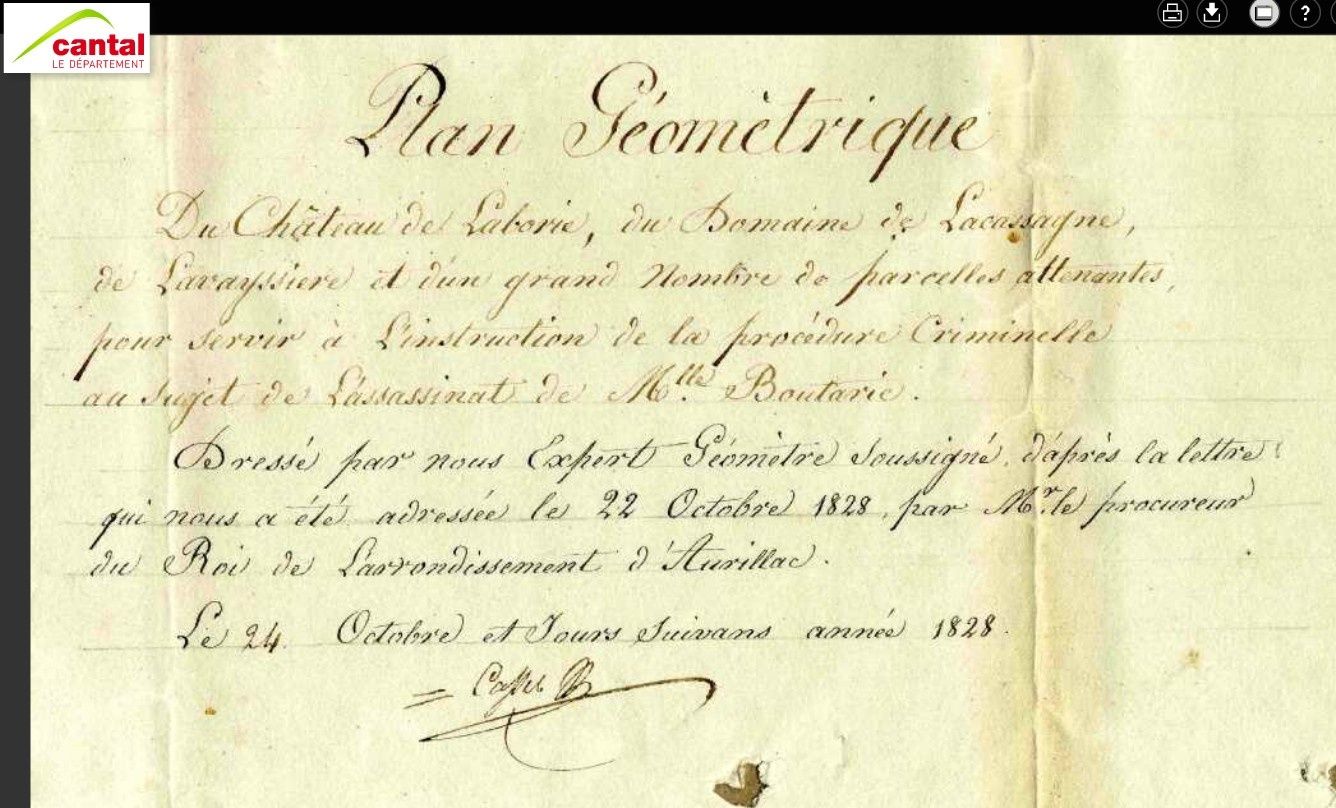 cantal
LE DÉPARTEMENT
?
Plan Géomètrique
Du Château de Laborie, du Domaine de Lacassagne,
de Lavayssiere et d'un grand Nombre de parcelles attenantes,
pour servir à L'instruction de la procédure Criminelle
au sujet de L'assassinat de Mlle Boutaric.
Dressé par nous Expert Géomètre Soussigné, d'après la lettre
qui nous a été adressée le 22 Octobre 1828, par Mr. le procureur
du Roi de L'arrondissement d'Aurillac.
Le 24. Octobre et Jours Suivans année 1828.